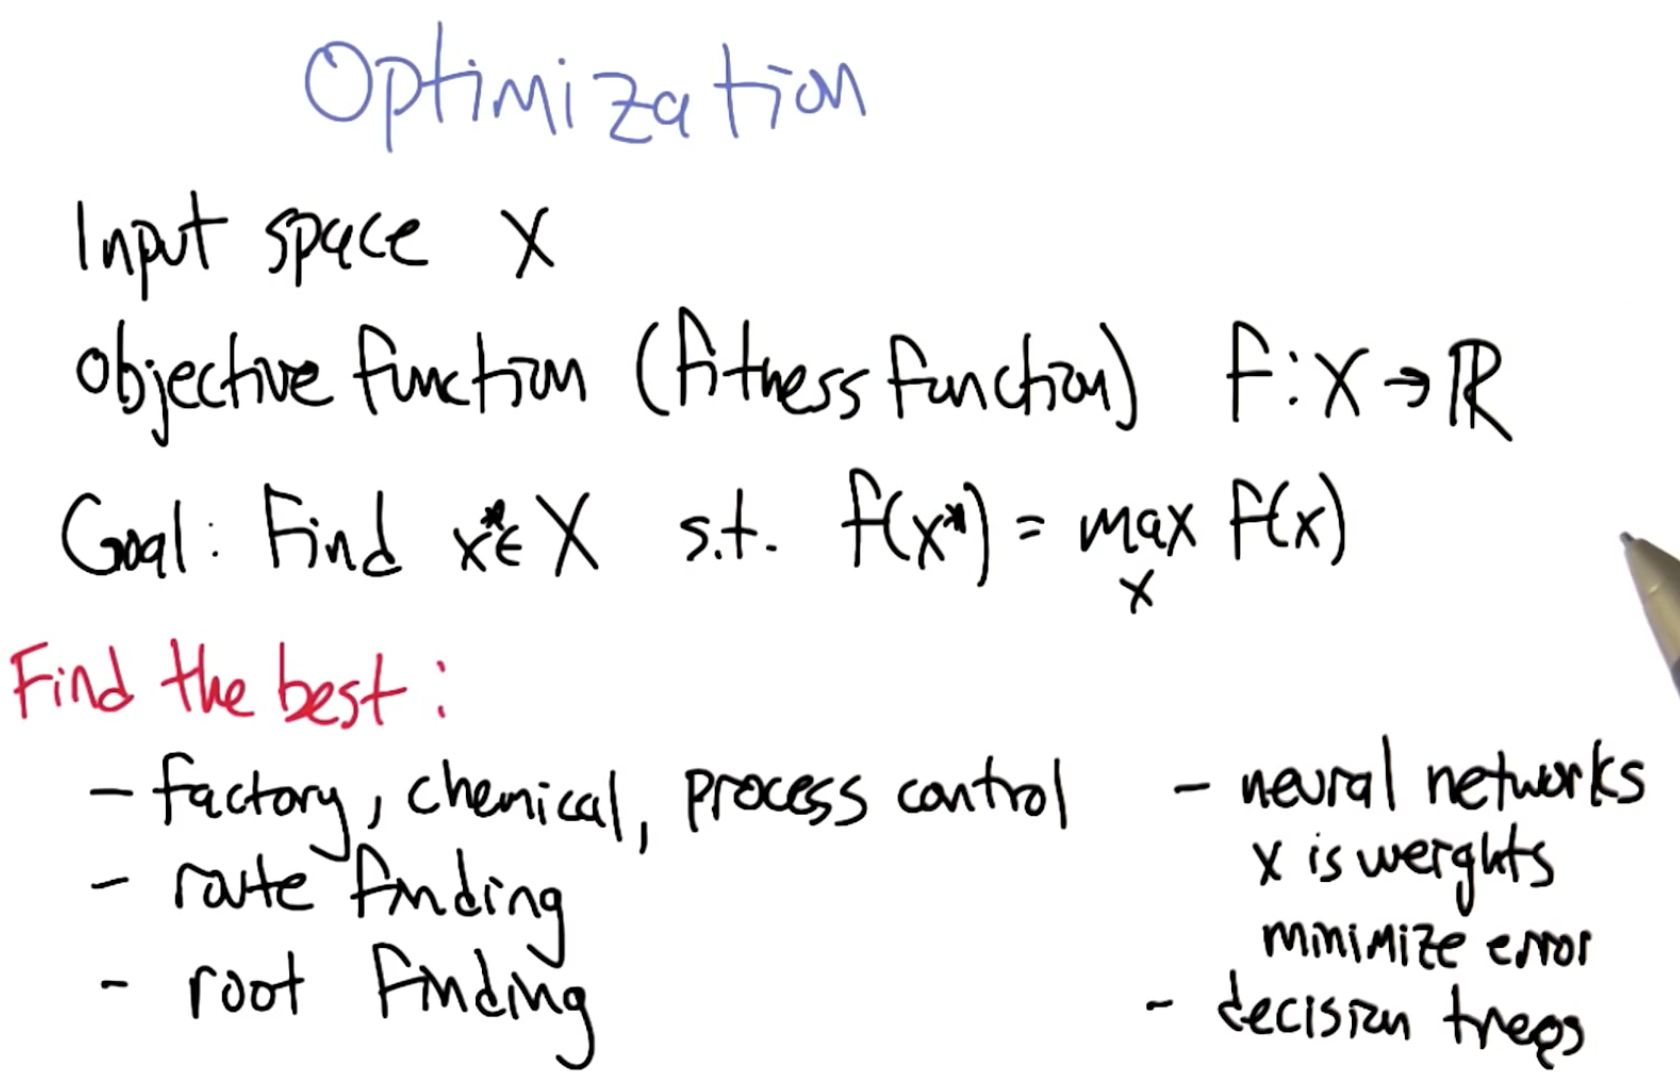 Optimization
Input space X
Objective function (fitness function) f: X → ℝ
Goal: Find x* ∈ X s.t. f(x*) = max f(x)
x
Find the best:
- factory, chemical, process control
- route finding
- root finding
- neural networks
x is weights
minimize error
- decision trees